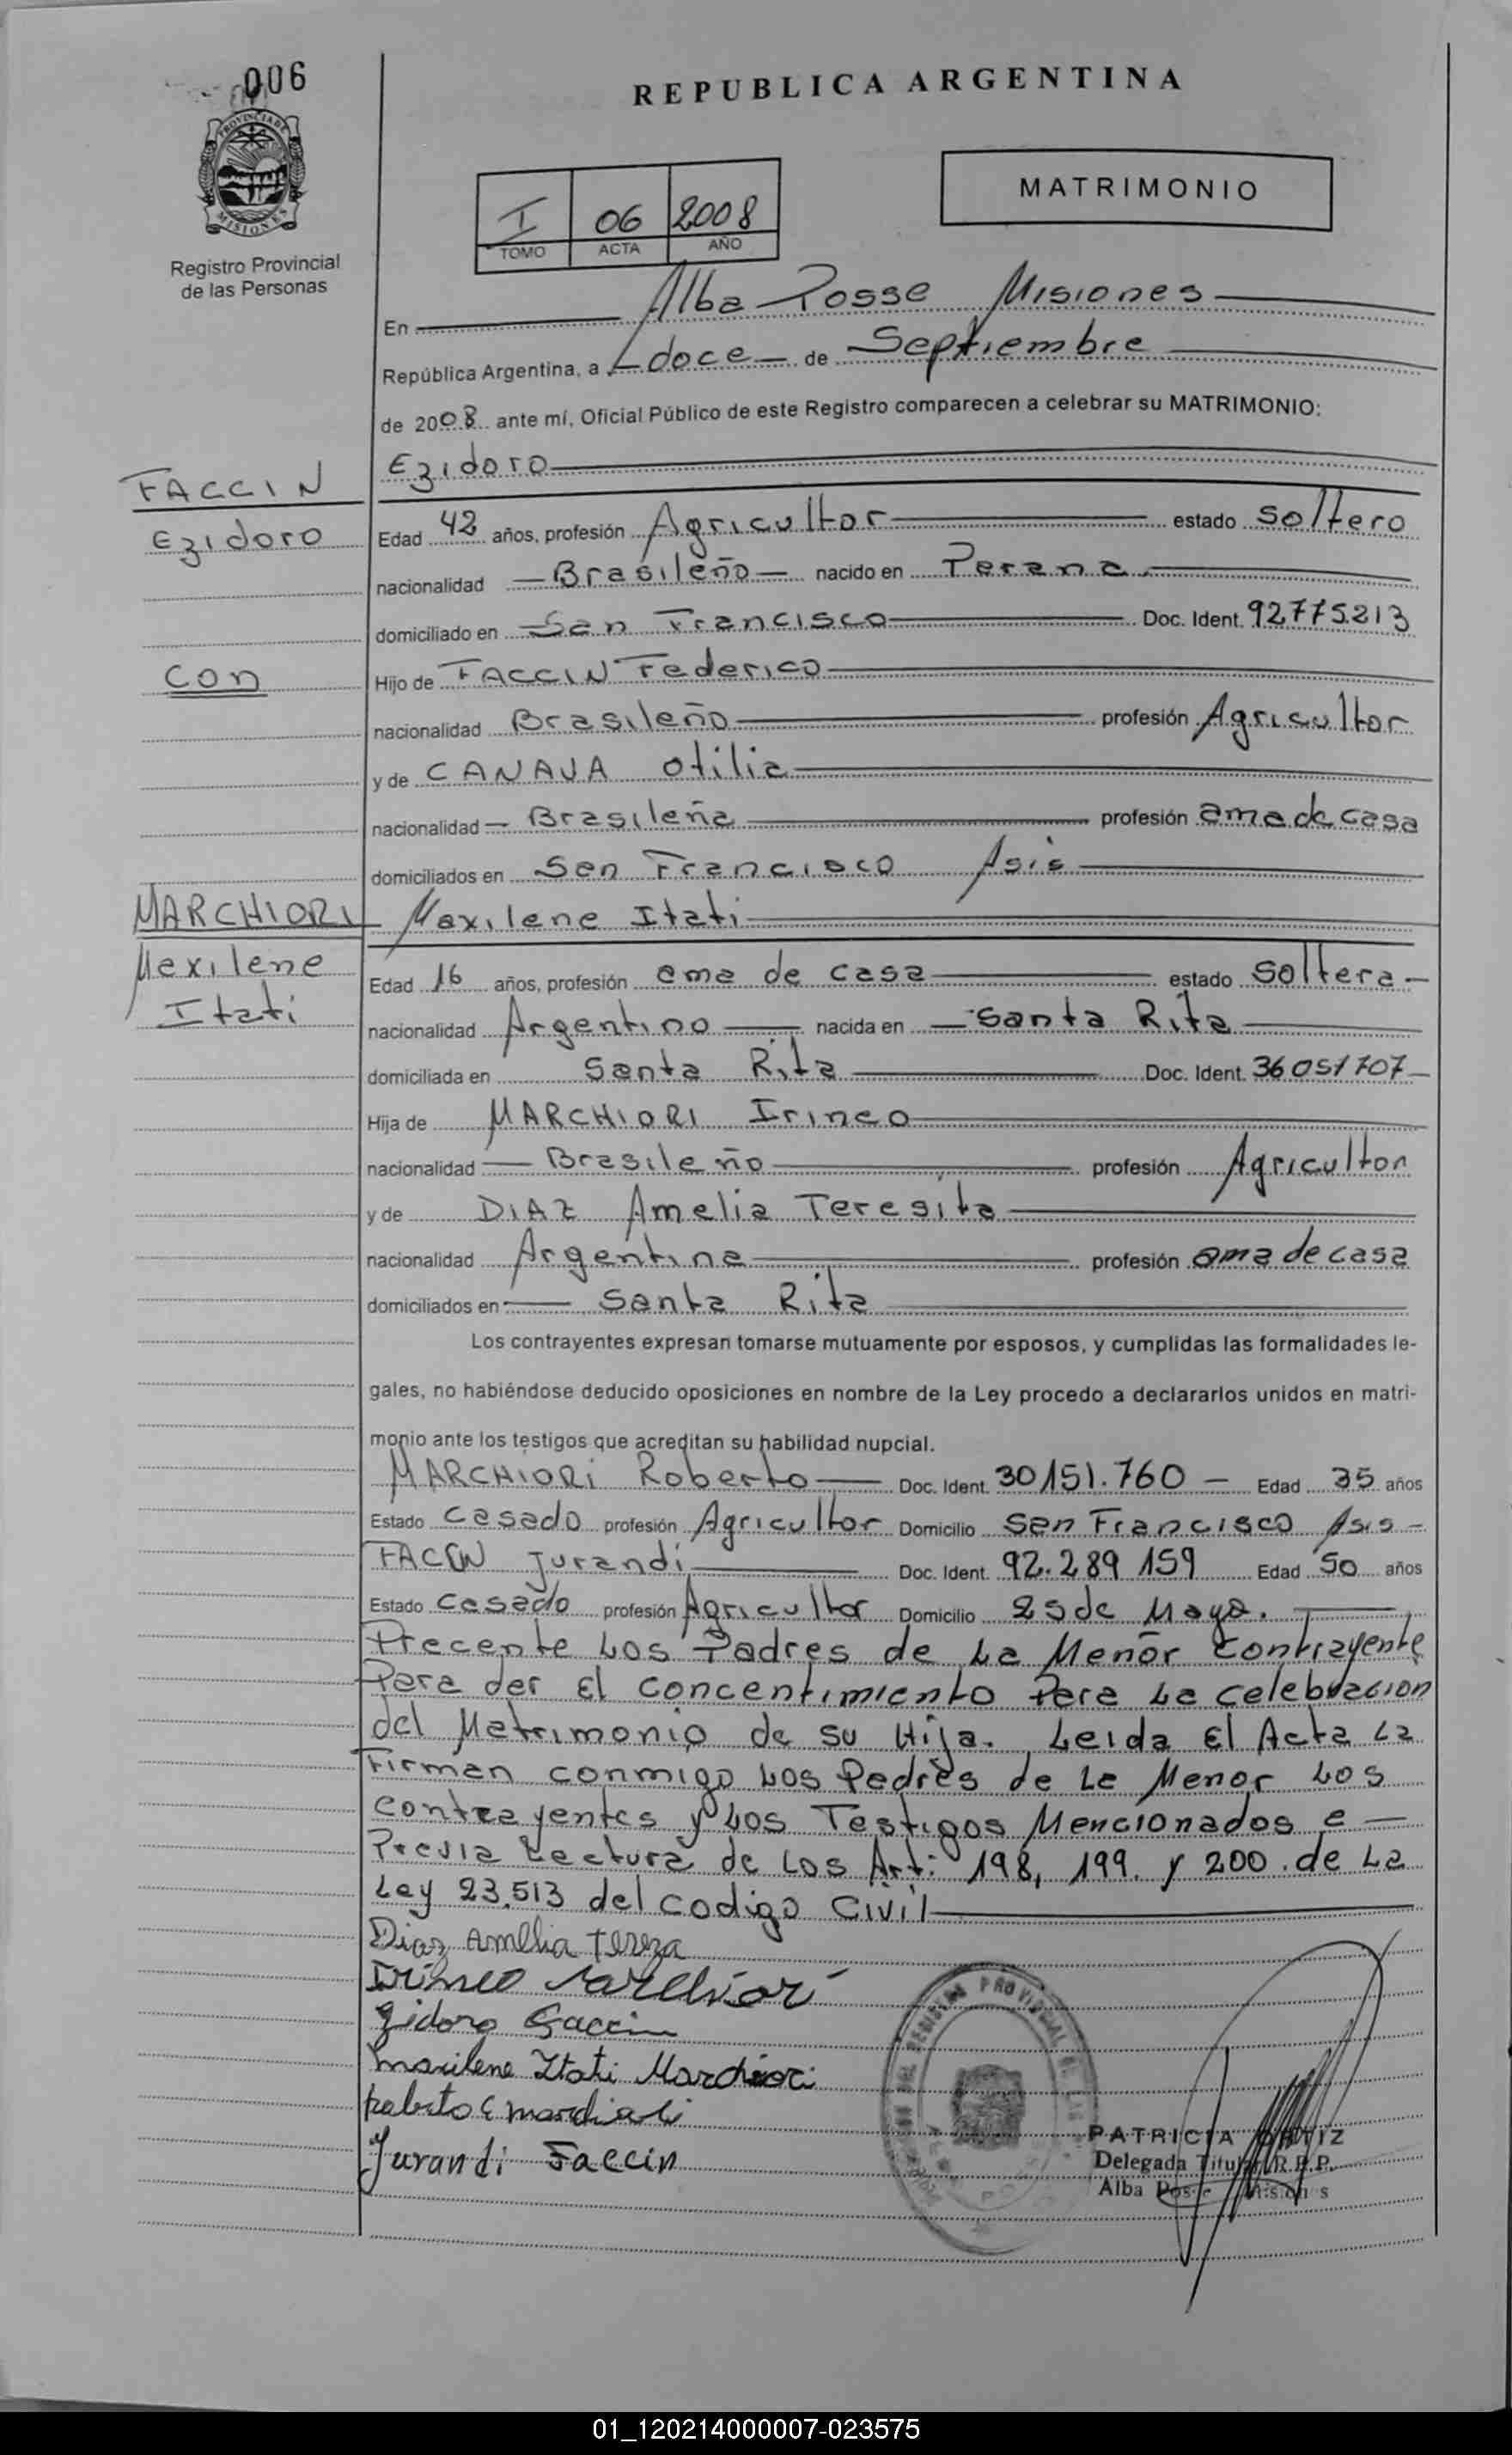 006
REPUBLICA ARGENTINA
PROVINCIA DE
MISIONES
Registro Provincial
de las Personas
I 06 2008
TOMO ACTA AÑO
MATRIMONIO
En Alba Posse Misiones
República Argentina, a doce de Septiembre
de 2008 ante mí, Oficial Público de este Registro comparecen a celebrar su MATRIMONIO:
FACCIN
Ezidoro
con
MARCHIORI
Maxilene
Itati
Ezidoro
Edad 42 años, profesión Agricultor estado soltero
nacionalidad Brasileño nacido en Parana
domiciliado en San Francisco Doc. Ident. 92775213
Hijo de FACCIN Federico
nacionalidad Brasileño profesión Agricultor
y de CANAVA Otilia
nacionalidad Brasileña profesión ama de casa
domiciliados en San Francisco Asis
Maxilene Itati
Edad 16 años, profesión ama de casa estado soltera
nacionalidad Argentino nacida en Santa Rita
domiciliada en Santa Rita Doc. Ident. 36051707
Hija de MARCHIORI Irineo
nacionalidad Brasileño profesión Agricultor
y de DIAZ Amelia Teresita
nacionalidad Argentina profesión ama de casa
domiciliados en Santa Rita
Los contrayentes expresan tomarse mutuamente por esposos, y cumplidas las formalidades le-
gales, no habiéndose deducido oposiciones en nombre de la Ley procedo a declararlos unidos en matri-
monio ante los testigos que acreditan su habilidad nupcial.
MARCHIORI Roberto Doc. Ident. 30151.760 Edad 35 años
Estado Casado profesión Agricultor Domicilio San Francisco Asis
FACCIN Jurandi Doc. Ident. 92.289 159 Edad 50 años
Estado Casado profesión Agricultor Domicilio 25 de Mayo.
Precente Los Padres de La Menor Contrayente
Para dar El Concentimiento Para La Celebracion
del Matrimonio de su Hija. Leida El Acta La
Firman conmigo Los Padres de La Menor Los
contrayentes y Los Testigos Mencionados e
Previa Lectura de Los Art: 198, 199. y 200. de La
Ley 23.513 del codigo Civil
Diaz Amelia Tereza
Irineo Marchiori
Ezidoro Faccin
Marilene Itati Marchiori
Roberto C Marchiori
Jurandi Faccin
PATRICIA ORTIZ
Delegada Titular R.P.P.
Alba Posse Misiones
01_120214000007-023575